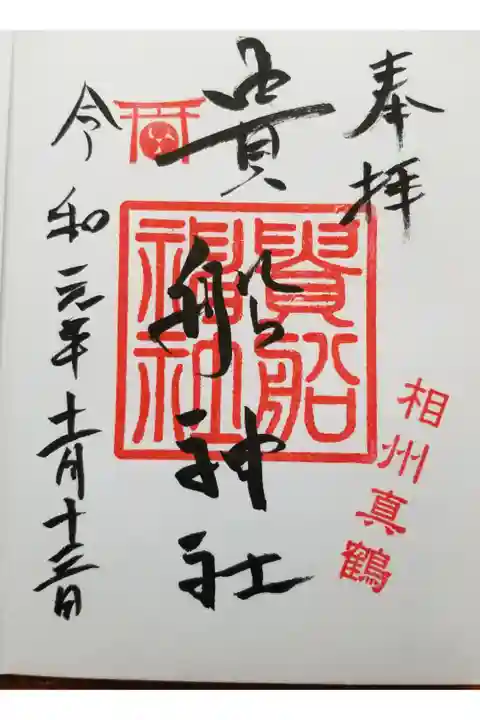 奉拝
相州真鶴
貴船神社
貴船
神社
令和元年十一月十三日